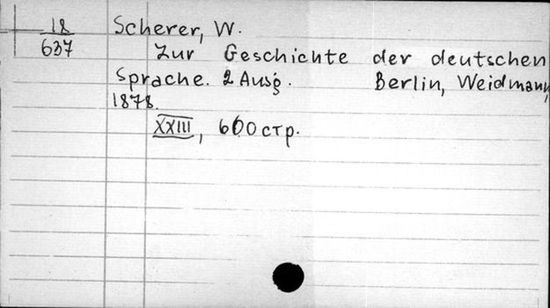 18
637
Scherer, W.
Zur Geschichte der deutschen
Sprache. 2 Ausg. Berlin, Weidmann,
1878.
XXIII, 600 стр.